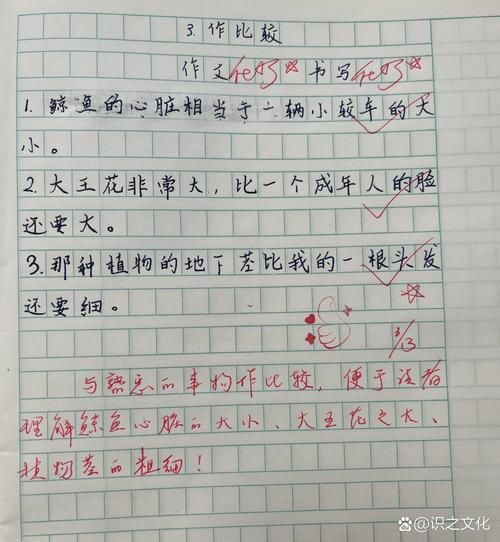 3.作比较
作文很好☆ 书写很好☆
1. 鲸鱼的心脏相当于一辆小较车的大
小。
2. 大王花非常大，比一个成年人的脸
还要大。
3. 那种植物的地下茎比我的一根头发
还要细。
3/13
与熟悉的事物作比较，便于读者
理解鲸鱼心脏的大小、大王花之大、
植物茎的粗细！
识之文化